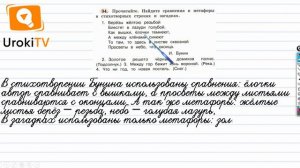 UrokiTV
34. Прочитайте. Найдите сравнения и метафоры
в стихотворных строках и загадках.
Берёзы жёлтою резьбой
Блестят в лазури голубой,
Как вышки, ёлочки темнеют,
А между клёнами синеют
То там, то здесь в листве сквозной
Просветы в небо, что оконца.
И. Бунин
2. Золотое решето чёрных домиков полно.
4. Что ни год, то новая постель. (Снег.)
В стихотворении Бунина использованы сравнения: ёлочки
автор сравнивает с вышками, а просветы между листьями
сравниваются с оконцами. А так же метафоры: жёлтые
листья берёз – резьба, небо – голубая лазурь,
в загадках использованы только метафоры: зол